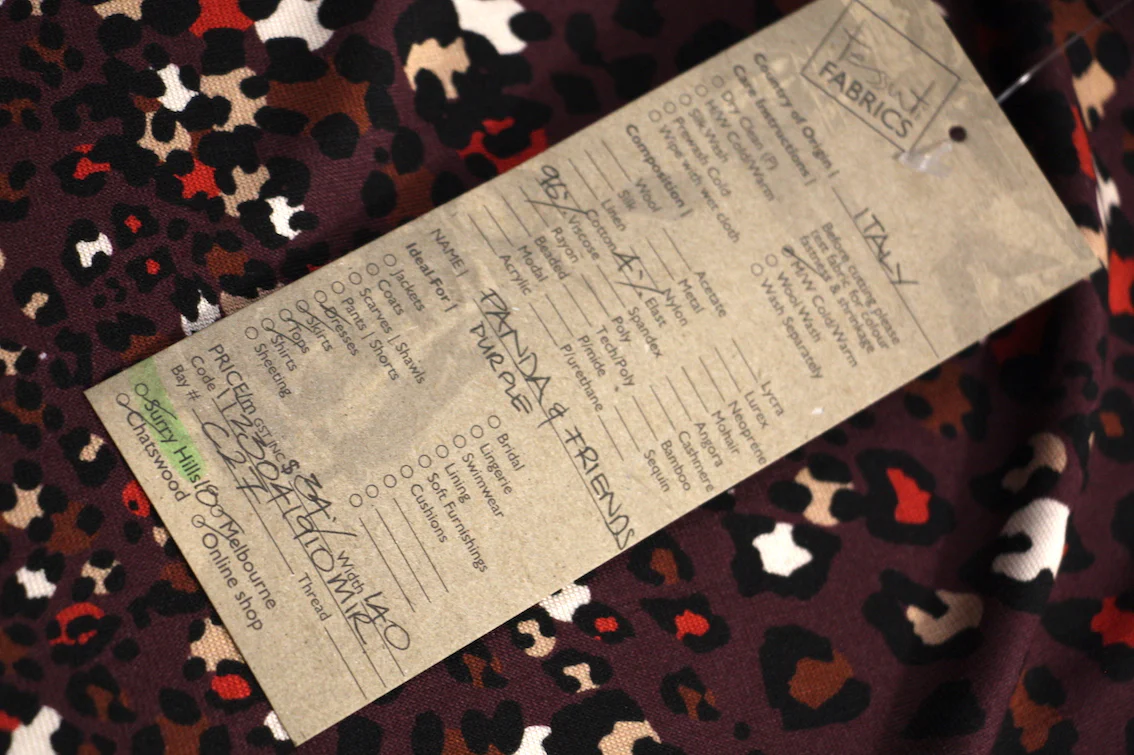 Tessuti
FABRICS
Country of Origin | ITALY
Care Instructions |
Dry Clean (P)
H/W Cold/Warm
Silk Wash
Prewash Cold
Wipe with wet cloth
Before cutting please
test fabric for colour
fastness & shrinkage
M/W Cold/Warm
Wool Wash
Wash Separately
Composition |
Wool
Silk
Linen
Cotton
96% Viscose
Rayon
Beaded
Modal
Acrylic
Acetate
Metal
Nylon
4% Elast
Spandex
Poly
Tech/Poly
P/mide
P/urethane
Lycra
Lurex
Neoprene
Mohair
Angora
Cashmere
Bamboo
Sequin
NAME | PANDA & FRIENDS
PURPLE
Ideal For |
Jackets
Coats
Scarves | Shawls
Pants | Shorts
Dresses
Skirts
Tops
Shirts
Sheeting
Bridal
Lingerie
Swimwear
Lining
Soft Furnishings
Cushions
PRICE/m GST INC $ 39./ Width 140
Code |
Bay # C27 Thread
Surry Hills Melbourne
Chatswood Online shop